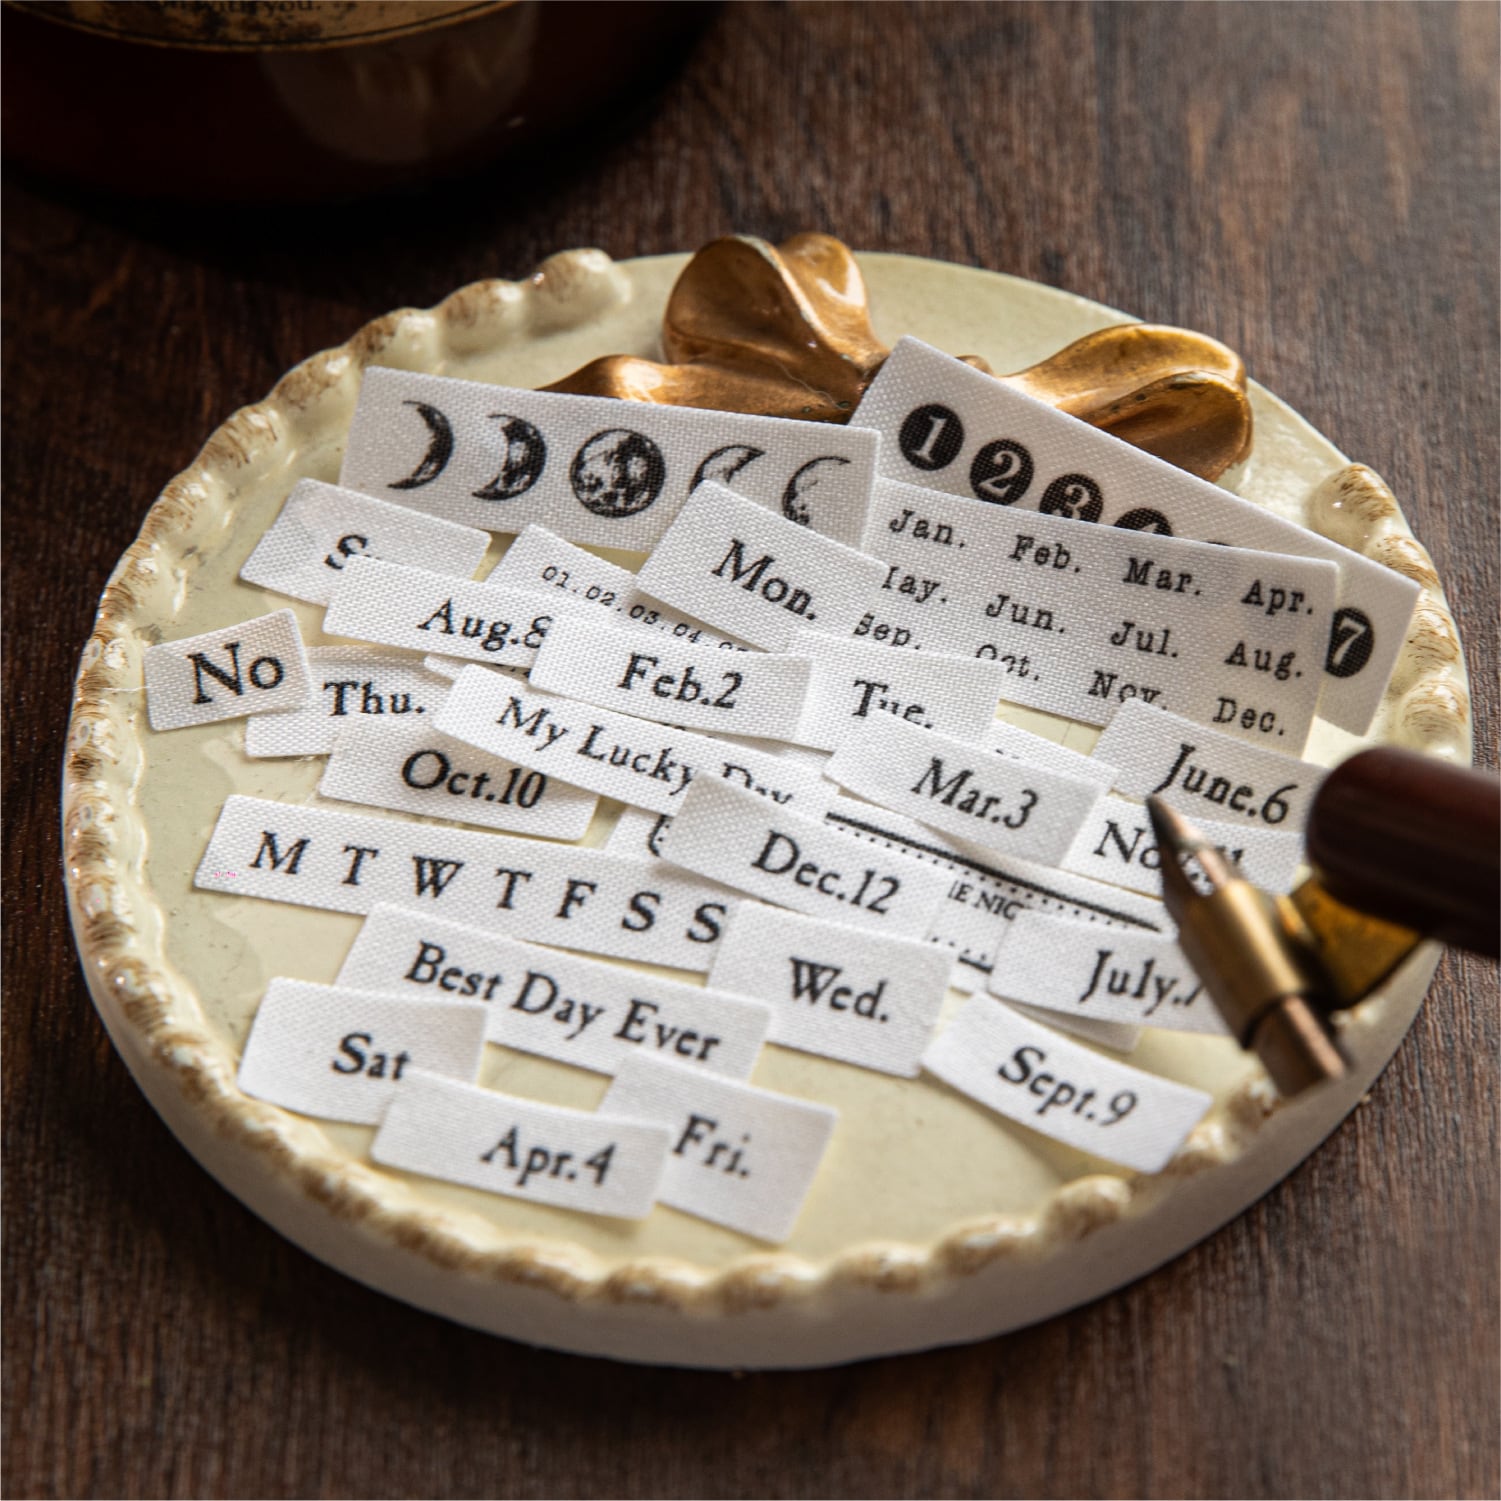 with you.
1 2 3 4
7
Jan. Feb. Mar. Apr.
Jun. Jul. Aug.
Sep. Oct. Nov. Dec.
Mon.
01.02.03.04
Aug.8
No
Thu.
Feb.2
Tue.
My Lucky Day
Oct.10
Mar.3
June.6
M T W T F S S
Dec.12
Best Day Ever
Wed.
July.7
Sat
Sept.9
Apr.4
Fri.